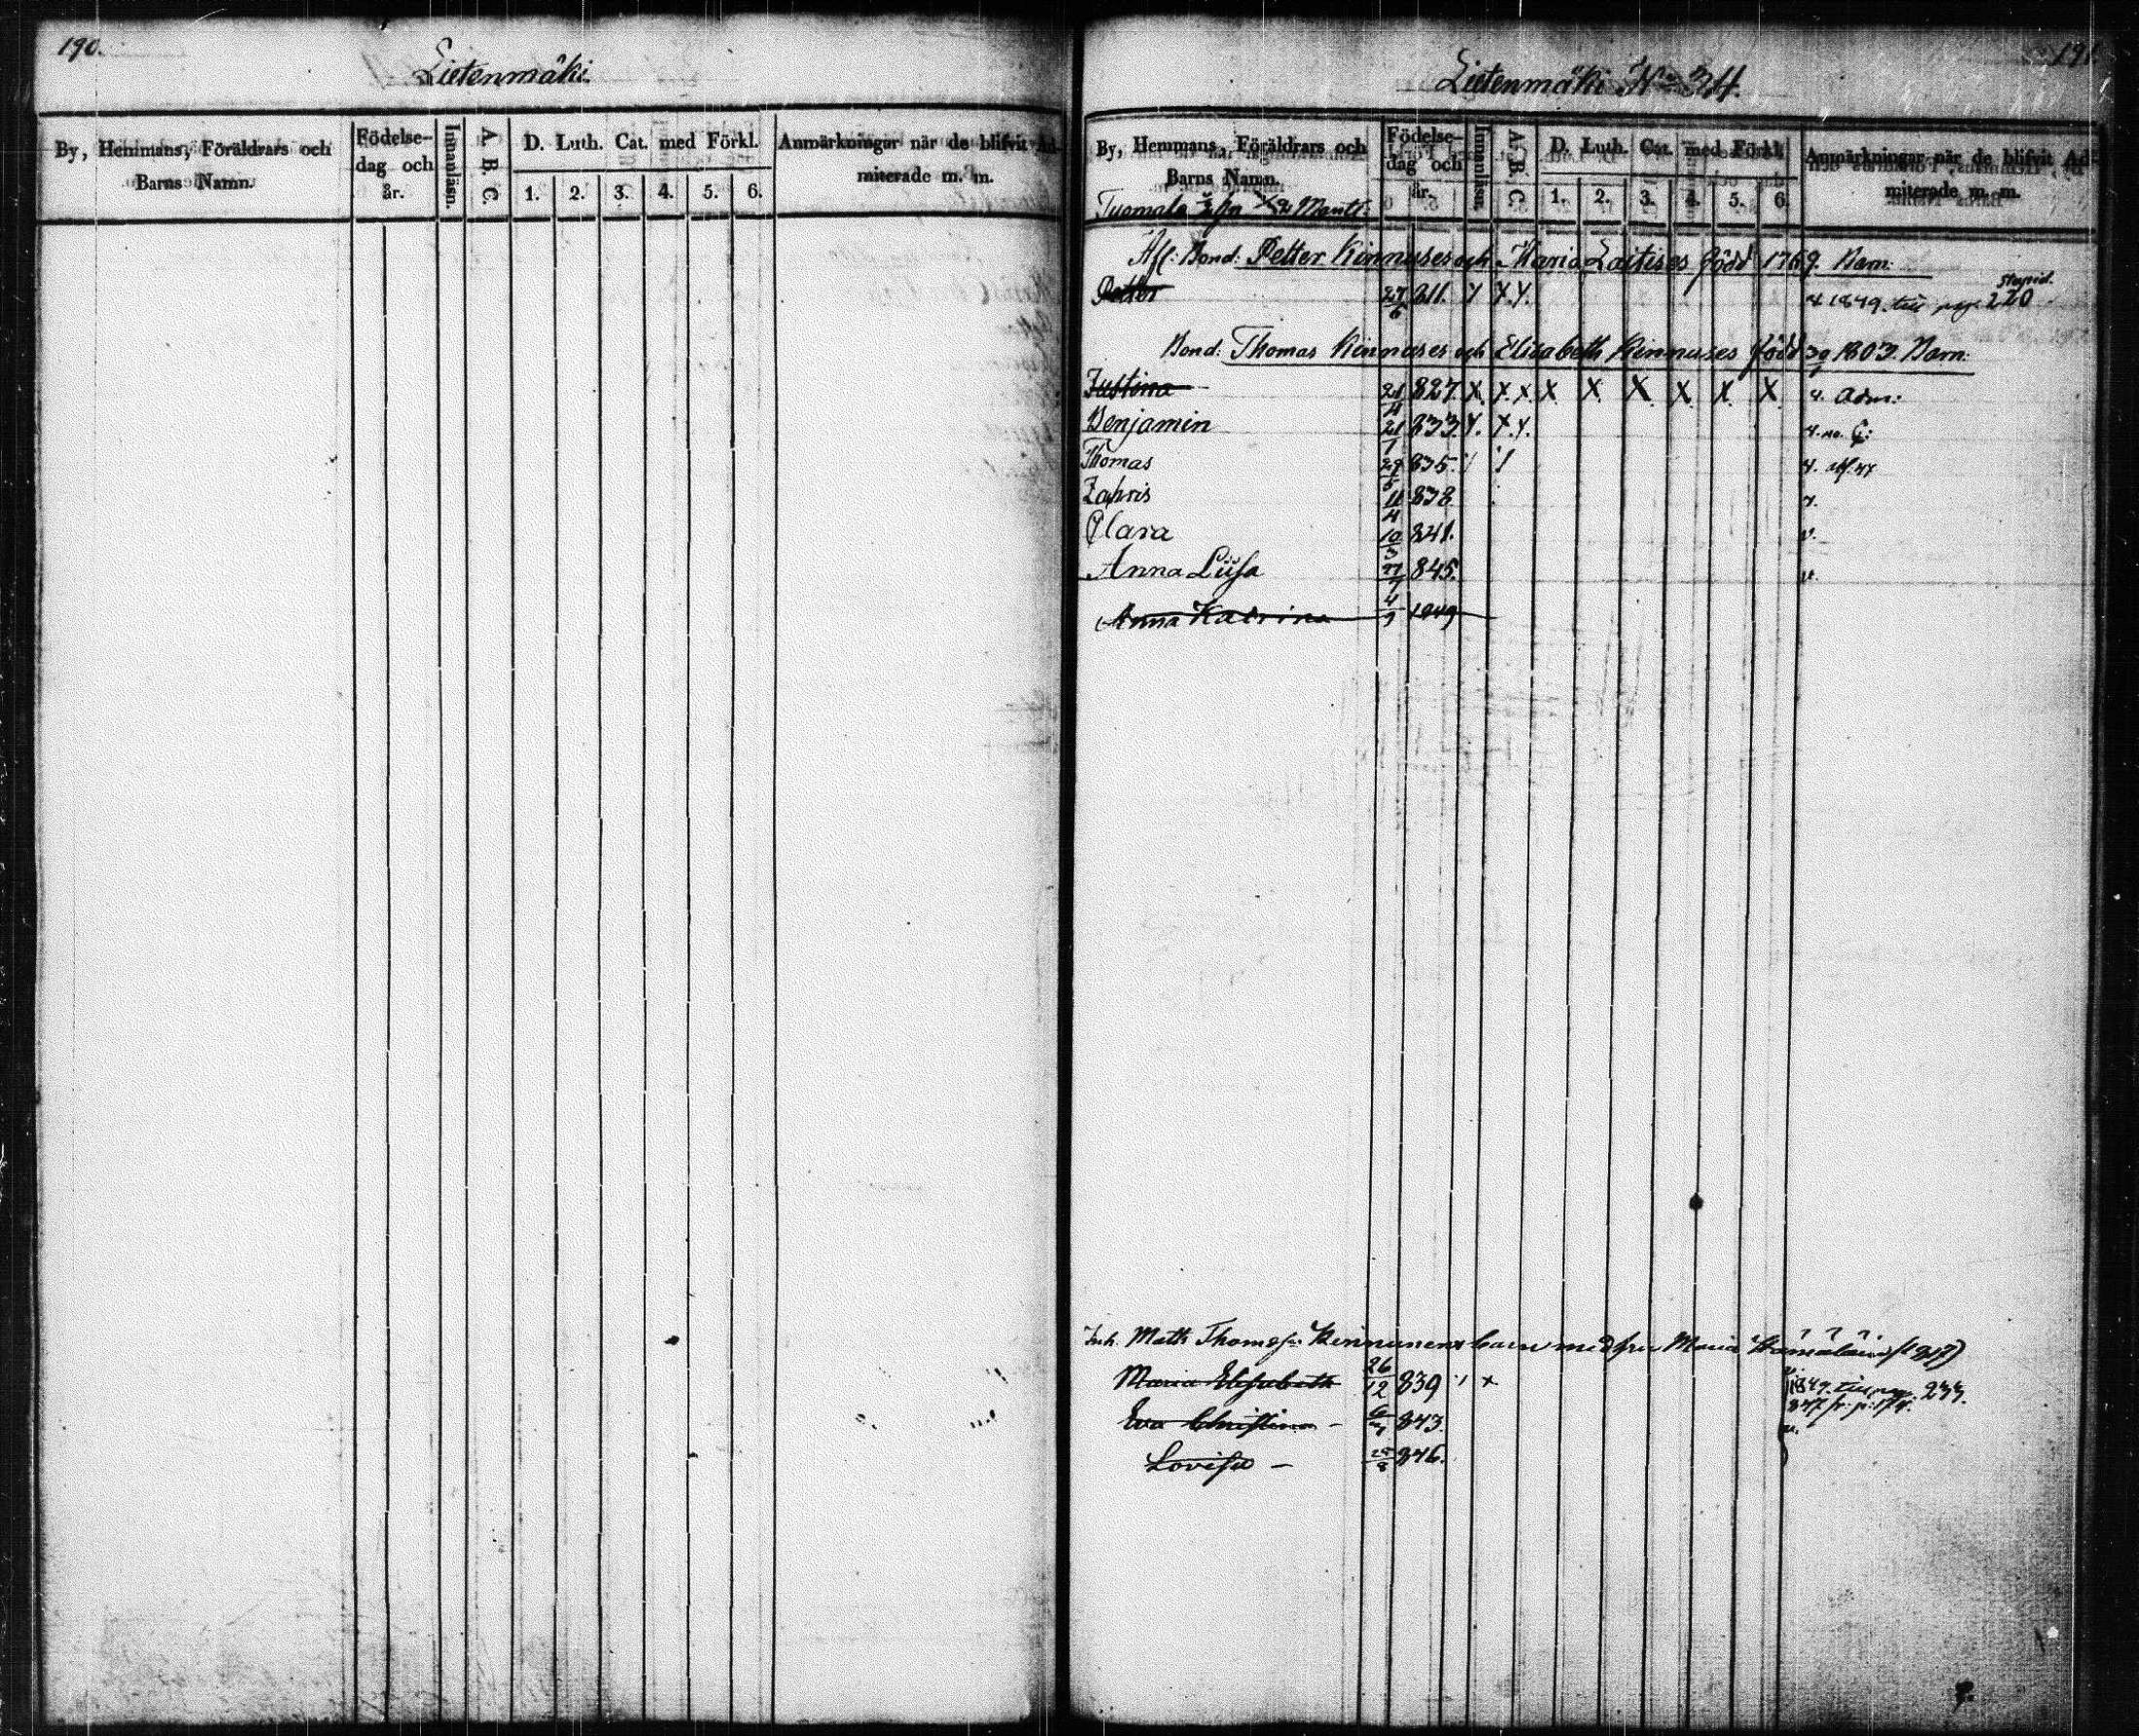 190.
Lietenmäki
By, Hemmans, Föräldrars och Barns Namn.
Födelse-dag och år.
Innanläsn.
A. B. C.
D. Luth. Cat. med Förkl.
1. 2. 3. 4. 5. 6.
Anmärkningar när de blifvit Ad-
miterade m. m.
191
Lietenmäki No 34.
By, Hemmans, Föräldrars och
Barns Namn.
Födelse-dag och år.
Innanläsn.
A. B. C
D. Luth. Cat. med Förkl.
1. 2. 3. 4. 5. 6.
Anmärkningar när de blifvit Ad-
miterade m. m.
Tuomala Mantl:
Afl: Bond: Petter Kinnuses och Maria Laitises född 1769. Barn:
stupid.
Petter 27/6 811. 1849 till pag. 220
Bond: Thomas Kinnuses och Elisabeth Kinnuses född 1803. Barn:
Justina 21/4 827. X. X. X. X X. X X. X. X Adm:
Benjamin 21/1 833.
Thomas 29/5 835.
Zahris 11/4 838
Clara 10/3 841.
Anna Liisa 845.
Anna Katrina 4/9 1849
Inh. Math Thomass: Kinnunens barn med hu Maria (1817)
Maria Elisabeth 26/12 839
1849 till pag. 233.
Eva Christina – 843.
Lovisa – 846.